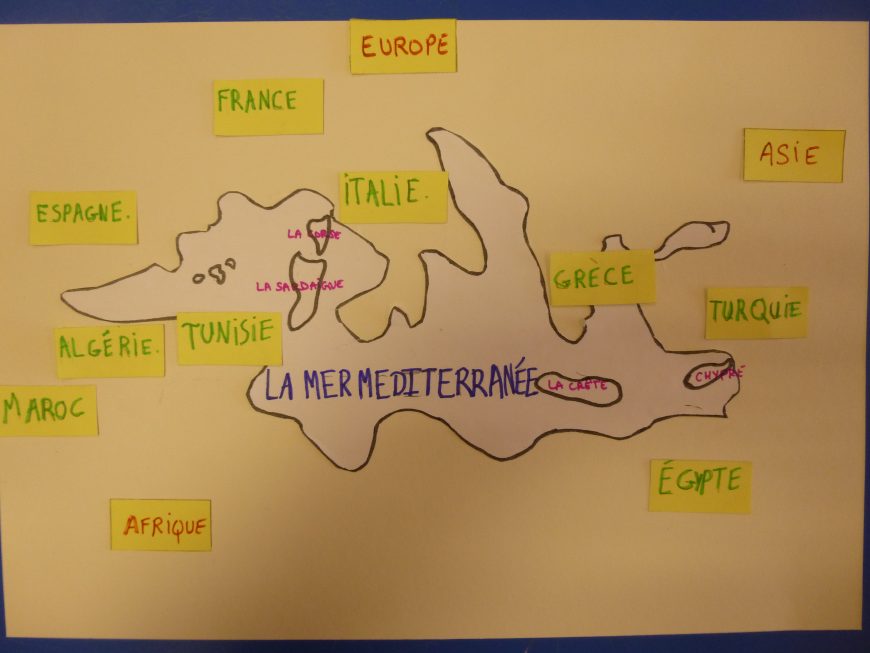 EUROPE
FRANCE
ASIE
ITALIE.
ESPAGNE.
LA CORSE
GRÈCE
LA SARDAIGUE
TURQUIE
ALGÉRIE.
TUNISIE
LA MER MEDITERRANÉE
LA CRÈTE
CHYPRE
MAROC
ÉGYPTE
AFRIQUE